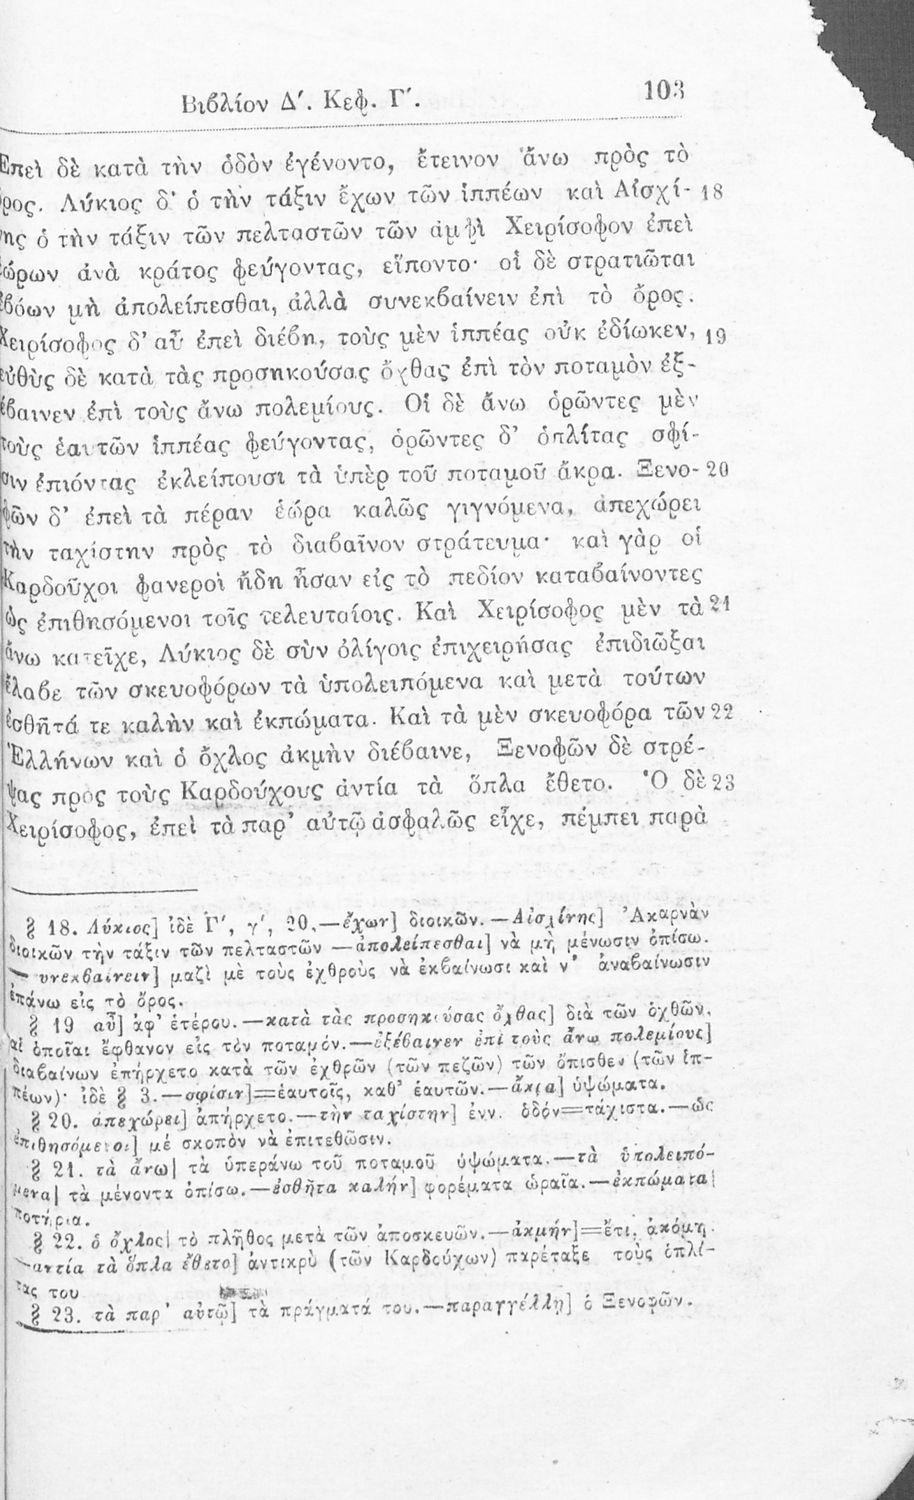 Βιβλίον Δ′. Κεφ. Γ′. 103
Ἐπεὶ δὲ κατὰ τὴν ὁδὸν ἐγένοντο, ἔτεινον ἄνω πρὸς τὸ
ὄρος. Λύκιος δ' ὁ τὴν τάξιν ἔχων τῶν ἱππέων καὶ Αἰσχί- 18
νης ὁ τὴν τάξιν τῶν πελταστῶν τῶν ἀμφὶ Χειρίσοφον ἐπεὶ
ἑώρων ἀνὰ κράτος φεύγοντας, εἵποντο· οἱ δὲ στρατιῶται
ἐβόων μὴ ἀπολείπεσθαι, ἀλλὰ συνεκβαίνειν ἐπὶ τὸ ὄρος.
Χειρίσοφος δ' αὖ ἐπεὶ διέβη, τοὺς μὲν ἱππέας οὐκ ἐδίωκεν, 19
εὐθὺς δὲ κατὰ τὰς προσηκούσας ὄχθας ἐπὶ τὸν ποταμὸν ἐξ-
έβαινεν ἐπὶ τοὺς ἄνω πολεμίους. Οἱ δὲ ἄνω ὁρῶντες μὲν
τοὺς ἑαυτῶν ἱππέας φεύγοντας, ὁρῶντες δ' ὁπλίτας σφί-
σιν ἐπιόντας ἐκλείπουσι τὰ ὑπὲρ τοῦ ποταμοῦ ἄκρα. Ξενο- 20
φῶν δ' ἐπεὶ τὰ πέραν ἑώρα καλῶς γιγνόμενα, ἀπεχώρει
τὴν ταχίστην πρὸς τὸ διαβαῖνον στράτευμα· καὶ γὰρ οἱ
Καρδοῦχοι φανεροὶ ἤδη ἦσαν εἰς τὸ πεδίον καταβαίνοντες
ὡς ἐπιθησόμενοι τοῖς τελευταίοις. Καὶ Χειρίσοφος μὲν τὰ 21
ἄνω κατεῖχε, Λύκιος δὲ σὺν ὀλίγοις ἐπιχειρήσας ἐπιδιῶξαι
ἔλαβε τῶν σκευοφόρων τὰ ὑπολειπόμενα καὶ μετὰ τούτων
ἐσθῆτά τε καλὴν καὶ ἐκπώματα. Καὶ τὰ μὲν σκευοφόρα τῶν 22
Ἑλλήνων καὶ ὁ ὄχλος ἀκμὴν διέβαινε, Ξενοφῶν δὲ στρέ-
ψας πρὸς τοὺς Καρδούχους ἀντία τὰ ὅπλα ἔθετο. Ὁ δὲ 23
Χειρίσοφος, ἐπεὶ τὰ παρ' αὐτῷ ἀσφαλῶς εἶχε, πέμπει παρὰ
§ 18. Λύκιος] ἰδὲ Γ′, γ′, 20.—ἔχων] διοικῶν.—Αἰσχίνης] Ἀκαρνὰν
διοικῶν τὴν τάξιν τῶν πελταστῶν —ἀπολείπεσθαι] νὰ μὴ μένωσιν ὀπίσω.
—υνεκβαίνειν] μαζὶ μὲ τοὺς ἐχθροὺς νὰ ἐκβαίνωσι καὶ ν' ἀναβαίνωσιν
ἐπάνω εἰς τὸ ὄρος.
§ 19 αὖ] ἀφ' ἑτέρου.—κατὰ τὰς προσηκούσας ὄχθας] διὰ τῶν ὀχθῶν,
αἱ ὁποῖαι ἔφθανον εἰς τὸν ποταμόν.—ἐξέβαινεν ἐπὶ τοὺς ἄνω πολεμίους]
διαβαίνων ἐπήρχετο κατὰ τῶν ἐχθρῶν (τῶν πεζῶν) τῶν ὄπισθεν (τῶν ἱπ-
πέων)· ἰδὲ § 3.—σφίσιν]=ἑαυτοῖς, καθ' ἑαυτῶν.—ἄκρα] ὑψώματα.
§ 20. ἀπεχώρει] ἀπήρχετο.—τὴν ταχίστην] ἐνν. ὁδόν=τάχιστα.—ὡς
ἐπιθησόμενοι] μὲ σκοπὸν νὰ ἐπιτεθῶσιν.
§ 21. τὰ ἄνω] τὰ ὑπεράνω τοῦ ποταμοῦ ὑψώματα.—τὰ ὑπολειπό-
μενα] τὰ μένοντα ὀπίσω.—ἐσθῆτα καλήν] φορέματα ὡραῖα.—ἐκπώματα]
ποτήρια.
§ 22. ὁ ὄχλος] τὸ πλῆθος μετὰ τῶν ἀποσκευῶν.—ἀκμήν]=ἔτι, ἀκόμη.
—αντία τὰ ὅπλα ἔθετο] ἀντικρὺ (τῶν Καρδούχων) παρέταξε τοὺς ὁπλί-
τας του
§ 23. τὰ παρ' αὐτῷ] τὰ πράγματά του.—παραγγέλλῃ] ὁ Ξενοφῶν.